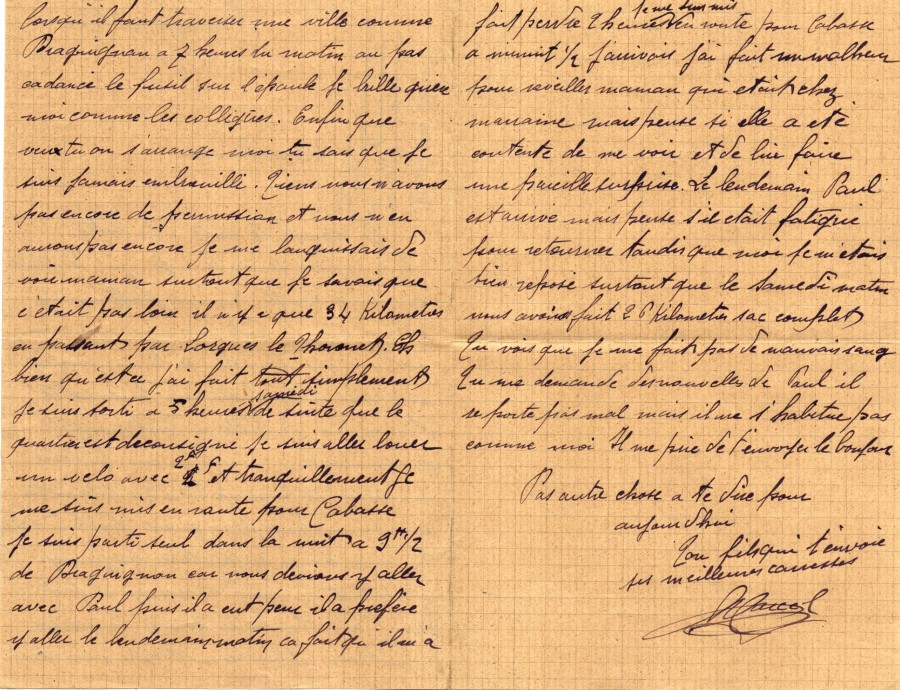 Lorsqu'il faut traverser une ville comme
Draguignan a 7 heures du matin au pas
cadancé le fusil sur l'épaule je brille rien
moi comme les collègues. Enfin que
veux tu on s'arrange moi tu sais que je
suis jamais embrouillé. Tiens nous n'avons
pas encore de permission et nous n'en
aurons pas encore je me languissais de
voir maman surtout que je savais que
c'était pas loin il n'y a que 34 Kilometres
en passant par Lorgues le Thoronet. Eh
bien qu'est ce j'ai fait tout simplement
samedi
je suis sorti a 5 heures de suite que le
quartier est deconsigné je suis aller louer
un velo avec 2F et tranquillement je
me suis mis en route pour Cabasse
je suis parti seul dans la nuit a 9h 1/2
de Draguignan car nous devions y aller
avec Paul puis il a eut peur il a préféré
y aller le lendemain matin ca fait qu'il m'a
je me suis mis
fait perdre 2 heures en route pour Cabasse
a minuit 1/2 j'arrivais j'ai fait un malheur
pour reveiller maman qui etait chez
marraine mais pense si elle a eté
contente de me voir et de lui faire
une pareille surprise. Le lendemain Paul
est arrivé mais pense s'il etait fatigué
pour retourner tandis que moi je m'étais
bien reposé surtout que le samedi matin
nous avions fait 2 Kilometres sac complet
Tu vois que je me fait pas de mauvais sang
Tu me demande des nouvelles de Paul il
se porte pas mal mais il ne s'habitue pas
comme moi Il me prie de t'envoyer le bonjour
Pas autre chose a te dire pour
aujourd'hui
Ton fils qui t'envoie
ses meilleures caresses
Marcel